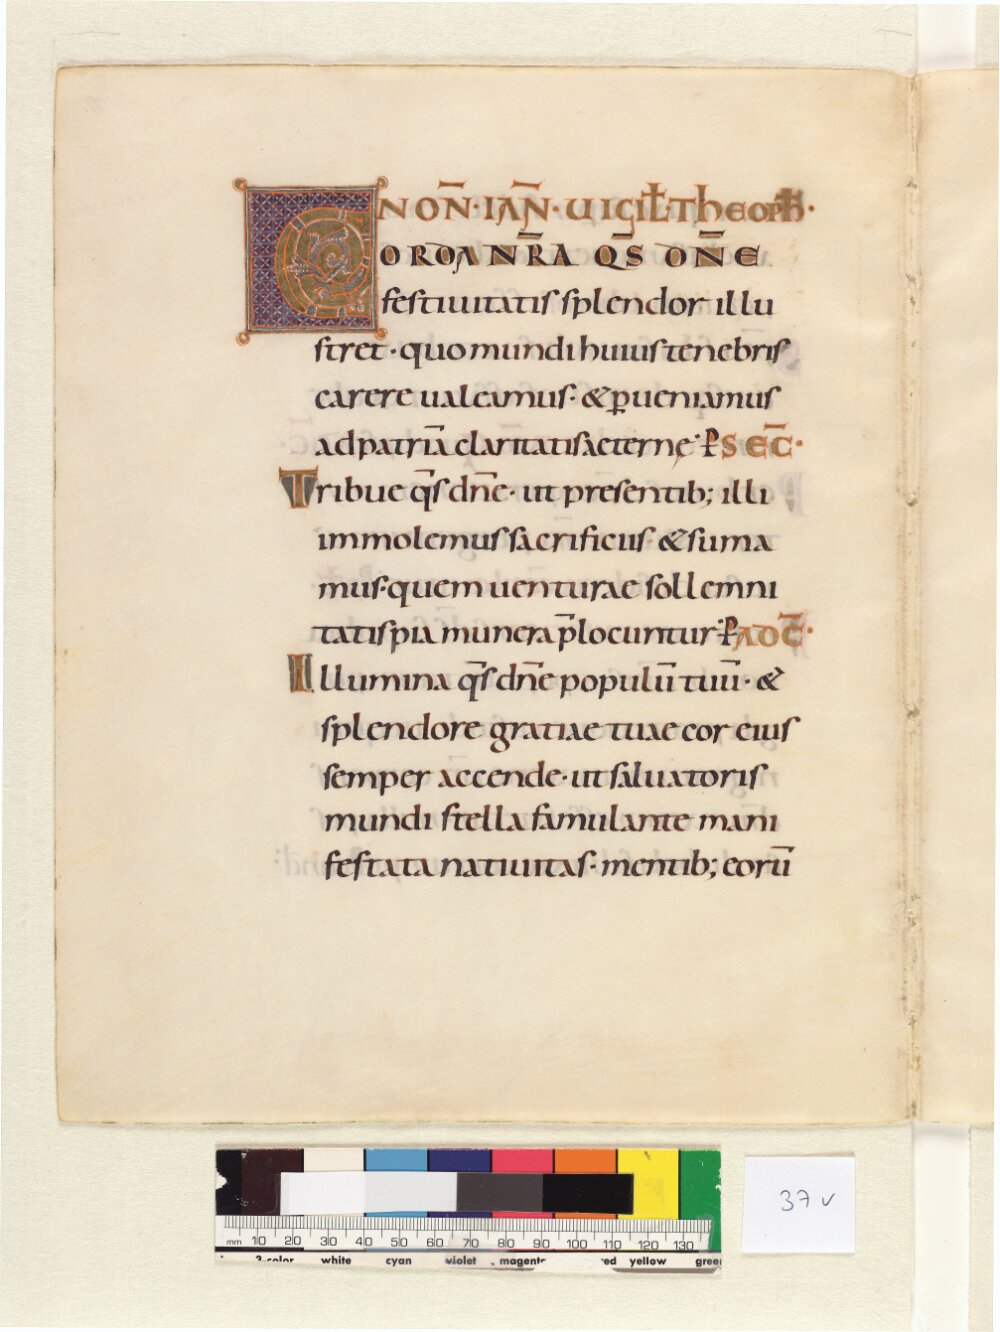 NON̄·IAN̄·UIGIŁ·Theoph̄·
CORDA NR̄A QS̄ DN̄E
festiuitatis splendor illu
stret· quo mundi huius tenebris
carere ualeamus· & ꝑueniamus
ad patriā claritatis aeternę· ꝑ SEC̄·
Tribue qs̄ dn̄e· ut presentib; illi
immolemus sacrificiis & suma
mus· quem uenturae sollemni
tatis pia munera p̄locuntur· ꝑ ADC̄·
Illumina qs̄ dn̄e populū tuū· &
splendore gratiae tuae cor eius
semper accende· ut saluatoris
mundi stella famulante mani
festata natiuitas· mentib; eorū
37v
mm 10 20 30 40 50 60 70 80 90 100 110 120 130
3-color white cyan violet magenta red yellow green